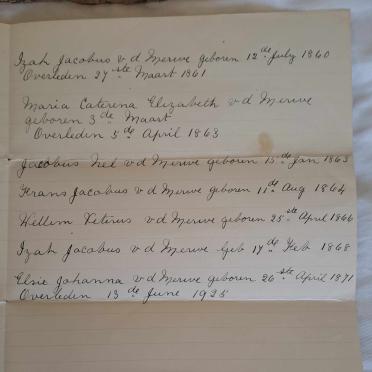 Izak Jacobus v d Merwe geboren 12de July 1860
Overleden 27ste Maart 1861
Maria Caterina Elizabeth v d Merwe
geboren 3de Maart
Overledin 5de April 1863
Jacobus Nel v d Merwe geboren 15de Jan 1863
Frans Jacobus v d Merwe geboren 11de Aug 1864
Willem Peterus v d Merwe geboren 25ste April 1866
Izak Jacobus v d Merwe Geb 17de Feb 1868
Elsie Johanna v d Merwe geboren 26ste April 1871
Overleden 13de June 1935